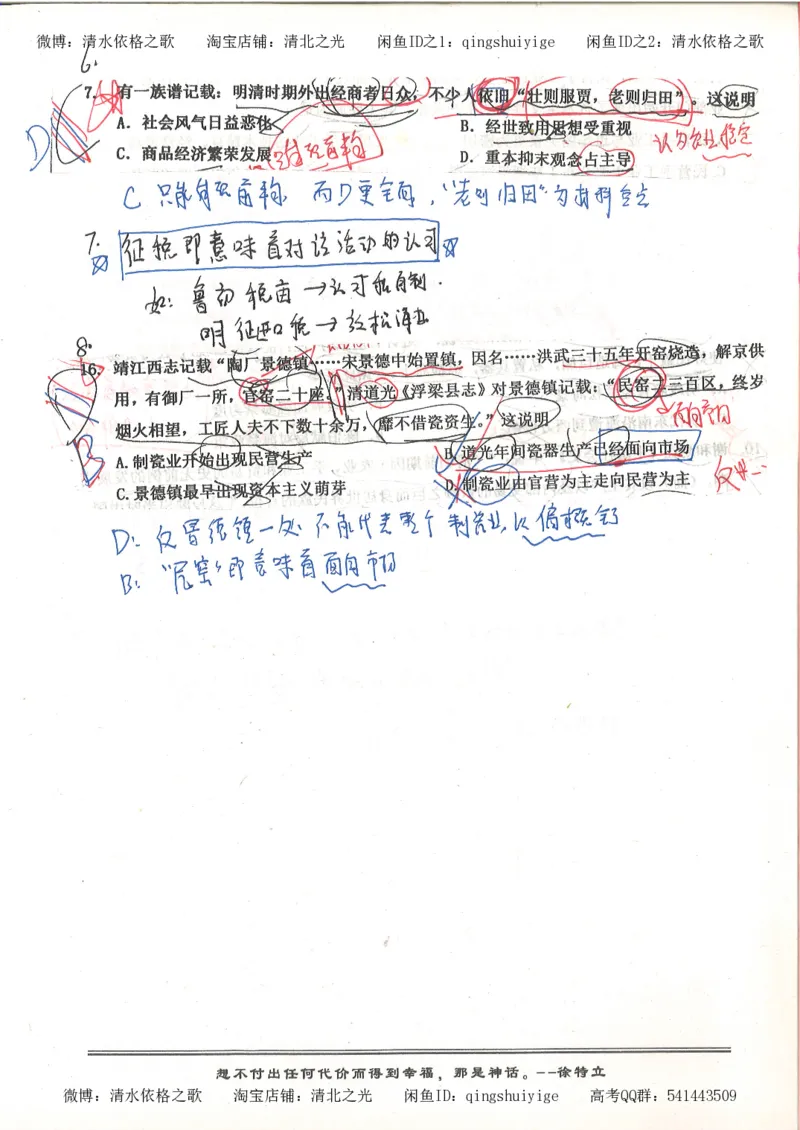 微博：清水依格之歌 淘宝店铺：清北之光 闲鱼ID之1：qingshuiyige 闲鱼ID之2：清水依格之歌
6.
7. 有一族谱记载：明清时期外出经商者日众，不少人依册“壮则服贾，老则归田”。这说明
A．社会风气日益恶化 B．经世致用思想受重视
C．商品经济繁荣发展 D．重本抑末观念占主导
认为农业稳定
D
C 只能体现前称 而D更全面，“老则归田”为材料重点
7. 征税即意味着对该活动的认可
如：鲁初税亩→认可私自制．
明 征 税→放松海
8.
16. 靖江西志记载“陶厂景德镇……宋景德中始置镇，因名……洪武三十五年开窑烧造，解京供
用，有御厂一所，官窑二十座。”清道光《浮梁县志》对景德镇记载：“民窑二三百区，终岁
烟火相望，工匠人夫不下数十余万，靡不借瓷资生。”这说明
面向市场
B
A.制瓷业开始出现民营生产 B.道光年间瓷器生产已经面向市场
C.景德镇最早出现资本主义萌芽 D.制瓷业由官营为主走向民营为主
D：仅景德镇一处 不能代表整个制瓷业，以偏概全
B：“民窑”即意味着面向市场
想不付出任何代价而得到幸福，那是神话。--徐特立
微博：清水依格之歌 淘宝店铺：清北之光 闲鱼ID：qingshuiyige 高考QQ群：541443509